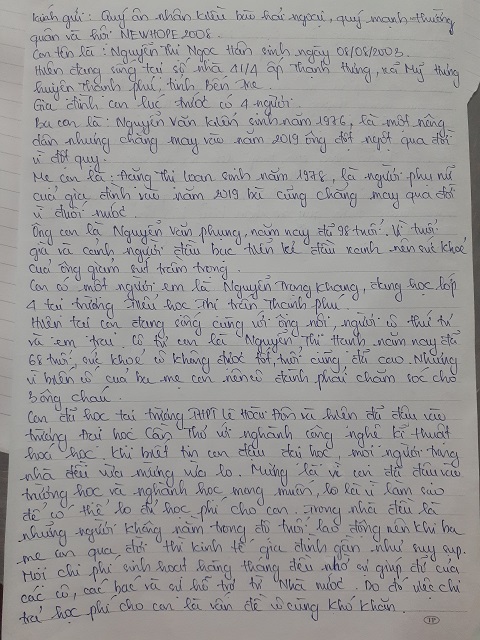 Kính gửi: Quý ân nhân kiều bào hải ngoại, quý mạnh thường
quân và hội NEWHOPE2008.
Con tên là: Nguyễn Thị Ngọc Hân sinh ngày 08/08/2003
Hiện đang sống tại số nhà 41/4 ấp Thạnh Hưng, xã Mỹ Hưng
huyện Thạnh Phú, tỉnh Bến Tre.
Gia đình con lúc trước có 4 người.
Ba con là: Nguyễn Văn sinh năm 1976, là một nông
dân nhưng chẳng may vào năm 2019 ông đột ngột qua đời
vì đột quỵ.
Mẹ con là: Đặng Thị Loan sinh năm 1978, là người phụ nữ
của gia đình vào năm 2019 bà cũng chẳng may qua đời
vì đuối nước.
Ông con là Nguyễn Văn Phung, năm nay đã 98 tuổi. Vì tuổi
già và cảnh người đầu bạc tiễn kẻ đầu xanh nên sức khoẻ
của ông giảm sút trầm trọng.
Con có một người em là Nguyễn Trọng Khang, đang học lớp
4 tại trường Tiểu học Thị trấn Thạnh Phú.
Hiện tại con đang sống cùng với ông nội, người cô thứ tư
và em trai. Cô tư con là Nguyễn Thị Hạnh năm nay đã
68 tuổi, sức khoẻ cô không được tốt, tuổi cũng đã cao. Nhưng
vì biến cố của ba mẹ con nên cô đành phải chăm sóc cho
3 ông cháu.
Con đã học tại trường THPT Lê Hoài Đôn và hiện đã đậu vào
trường Đại học Cần Thơ với nghành công nghệ kĩ thuật
hoá học. Khi biết tin con đậu đại học, mọi người trong
nhà đều vừa mừng vừa lo. Mừng là vì con đã đậu vào
trường học và nghành học mong muốn, lo là vì làm sao
để có thể lo đủ học phí cho con. Trong nhà đều là
những người không nằm trong độ tuổi lao động nên khi ba
mẹ con qua đời thì kinh tế gia đình gần như suy sụp.
Mọi chi phí sinh hoạt hằng tháng đều nhờ sự giúp đỡ của
các cô, các bác và sự hỗ trợ từ Nhà nước. Do đó việc chi
trả học phí cho con là vấn đề vô cùng khó khăn.